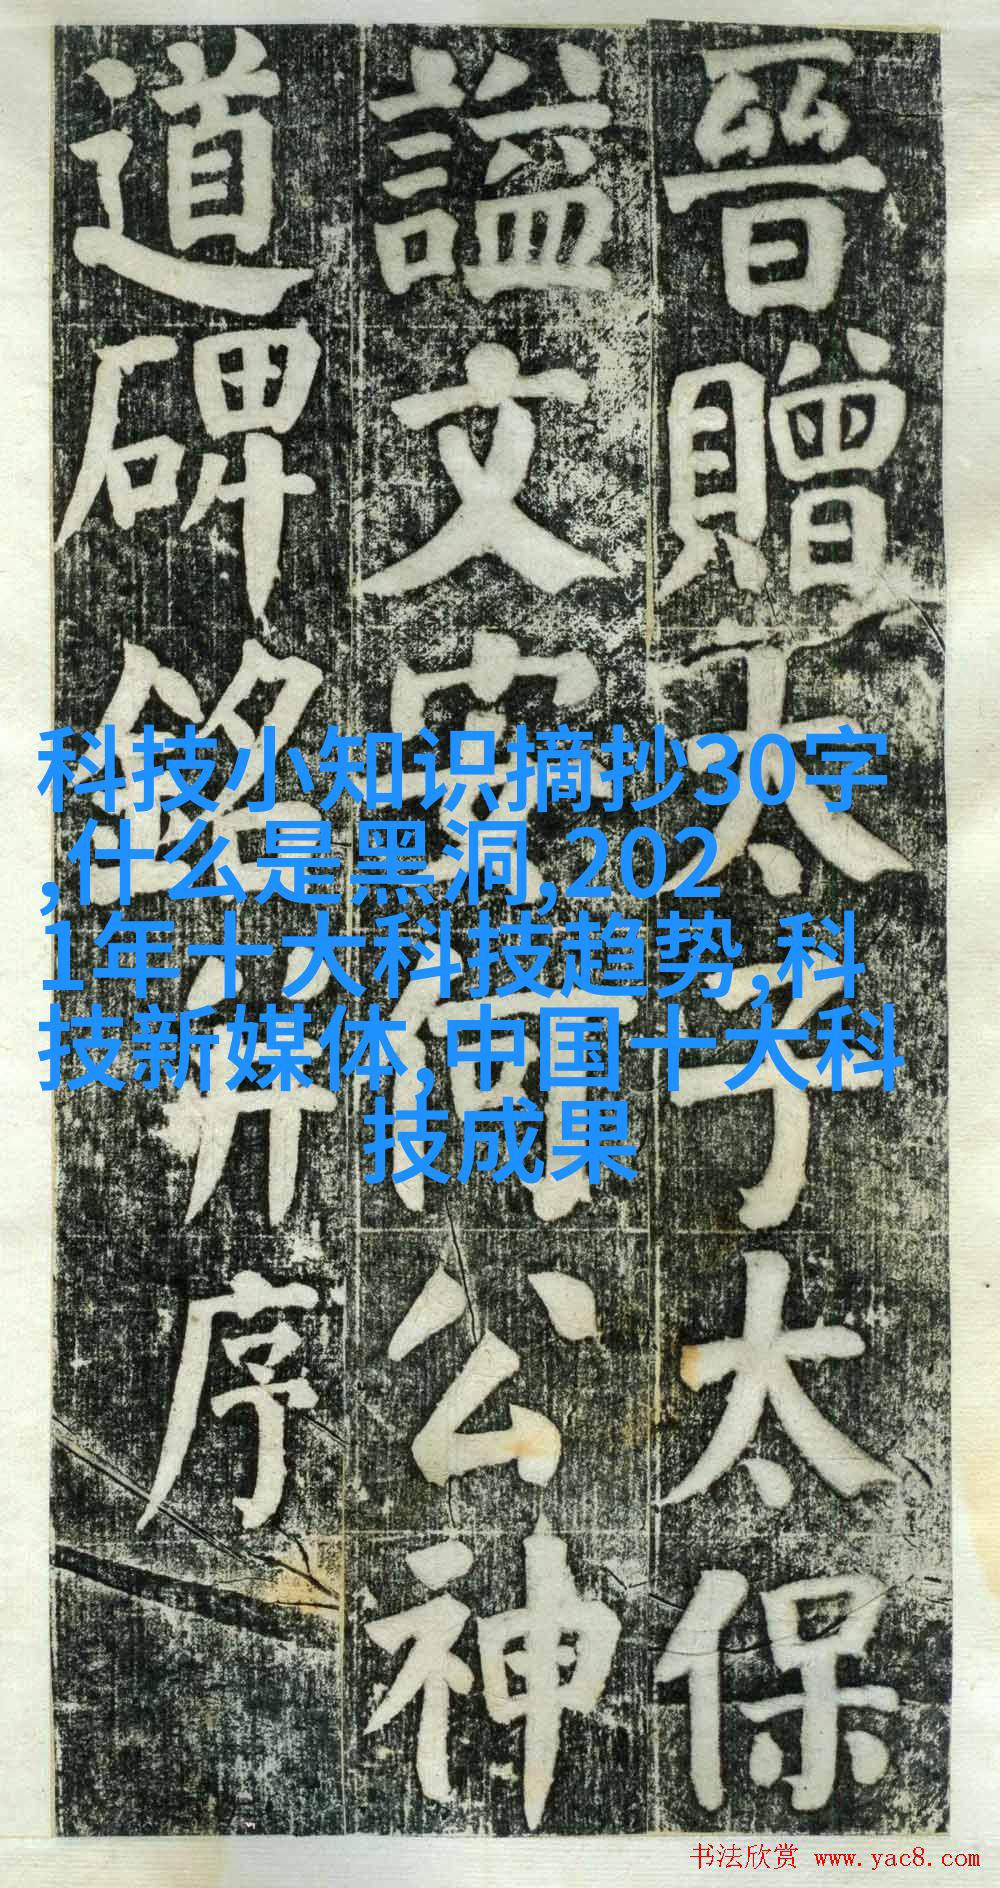 晉贈太子太保
謚文安何公神
道碑銘并序
科技小知识摘抄30字
,什么是黑洞,202
1年十大科技趋势,科
技新媒体,中国十大科
技成果
书法欣赏 www.yac8.com